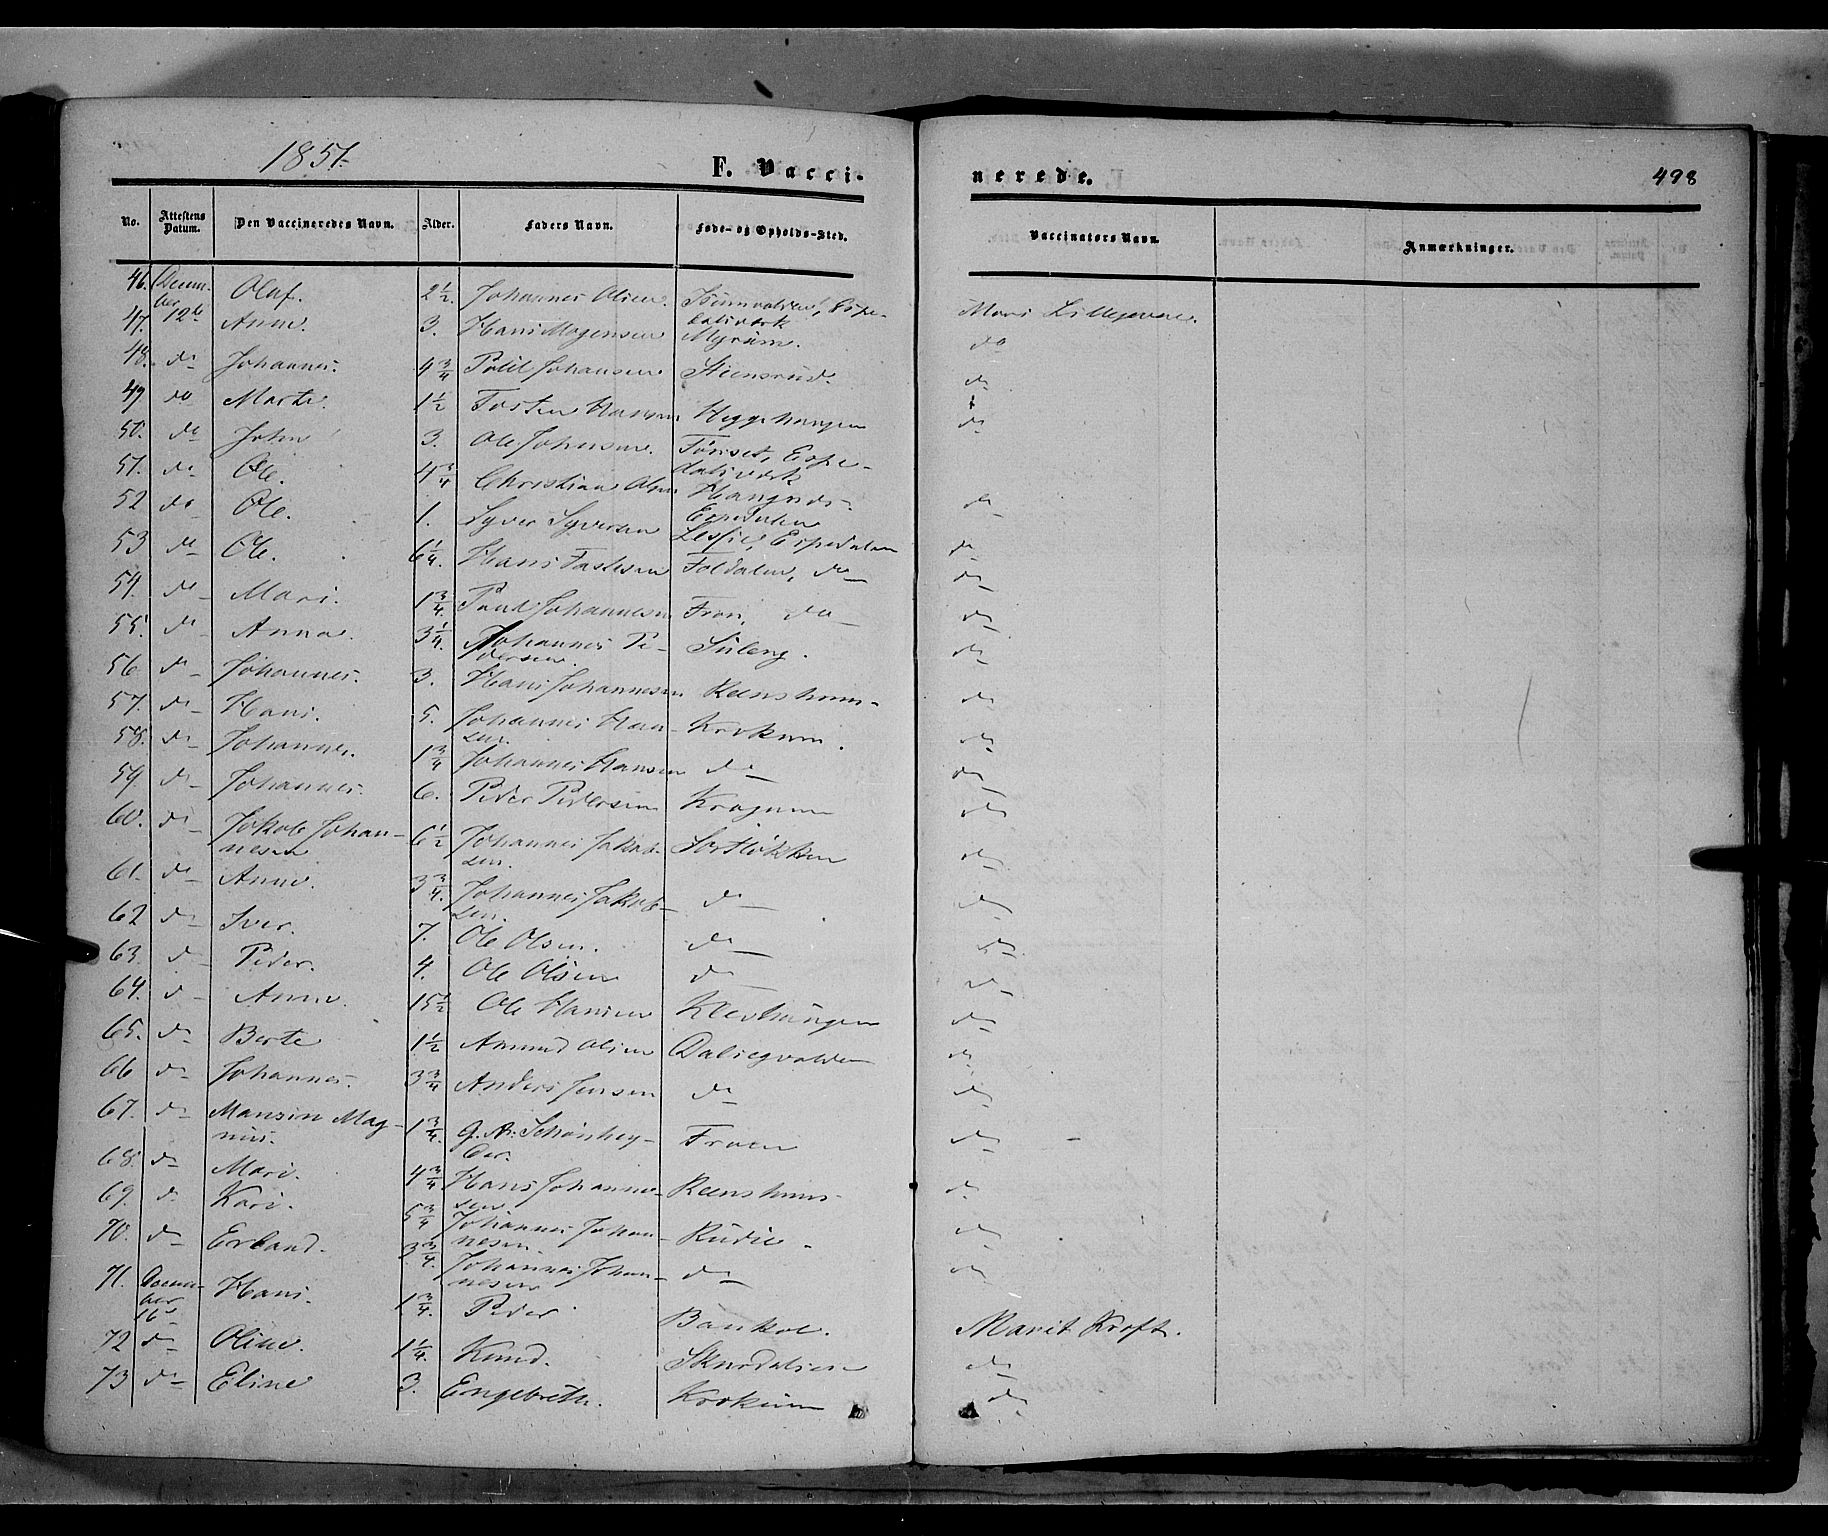 1851.
F. Vacci-
nerede.
498
No. Attestens Datum. Den Vaccineredes Navn. Alder. Faders Navn. Føde- og Opholds-Sted. Vaccinators Navn. Anmærkninger.
46. Decem-ber 12te Olaf. 2½. Johannes Olsen. Espe-dalsværk Mari
47. Anne 3. Hans Mogensen Myrum. do
48. do Johannes. 4¾ Poul Johansen Steensrud. do
49 do Marte. 1½ Tosten Hansen Heggehaugen do
50. do John 3. Ole Johensen. Tøriset, Espe-dalsværk
51. do Ole. 4¾ Christian Olsen
52 do Ole. 1. Syver Syversen Espedalen do
53 do Ole. 6¼. Hans Fastesen Foldalen, do do
54. do Mari. 1¾. Poul Johannesen Fron, do do
55. do Anna. 3¼. Johannes Pe-dersen. Suleng. do
56 do Johannes. 3. Hans Johannesen Reenshuus- do
57. do Hans. 5. Johannes Han-sen. Krokum. do
58. do Johannes. 1¾ Johannes Hansen do do
59. do Johannes. 6. Peder Pedersen Kragum do
60. do Jakob Johan-nesen 6½ Johannes Jakob-sen. Sortløkken do
61. do Anne. 3¾. Johannes Jakob-sen. do do
62 do Iver. 7. Ole Olsen. do do
63. do Peder. 4. Ole Olsen do do
64. do Anne. 15½ Ole Hansen Klevhaugen do
65. do Berte 1½ Amund Olsen do
66 do Johannes. 3¾ Anders Jensen do do
67. do Mag-nus. 1¾. Schønhey-der. Froen do
68. do Mari. 4¾ Hans Johanne-sen Reenshuus- do
69. do Kari. 5¾ Johannes Johan-nesen. Rudie. do
70. do Erland. 3¾. Johannes Johan-nesen do do
71. Decem-ber 16de Hans. 1¾. Peder Baukol. Marit Kroft.
72 do Oline. 1¼. Knud. Skurdalseie do
73 do Eline 3. Engebreth. Krokum do